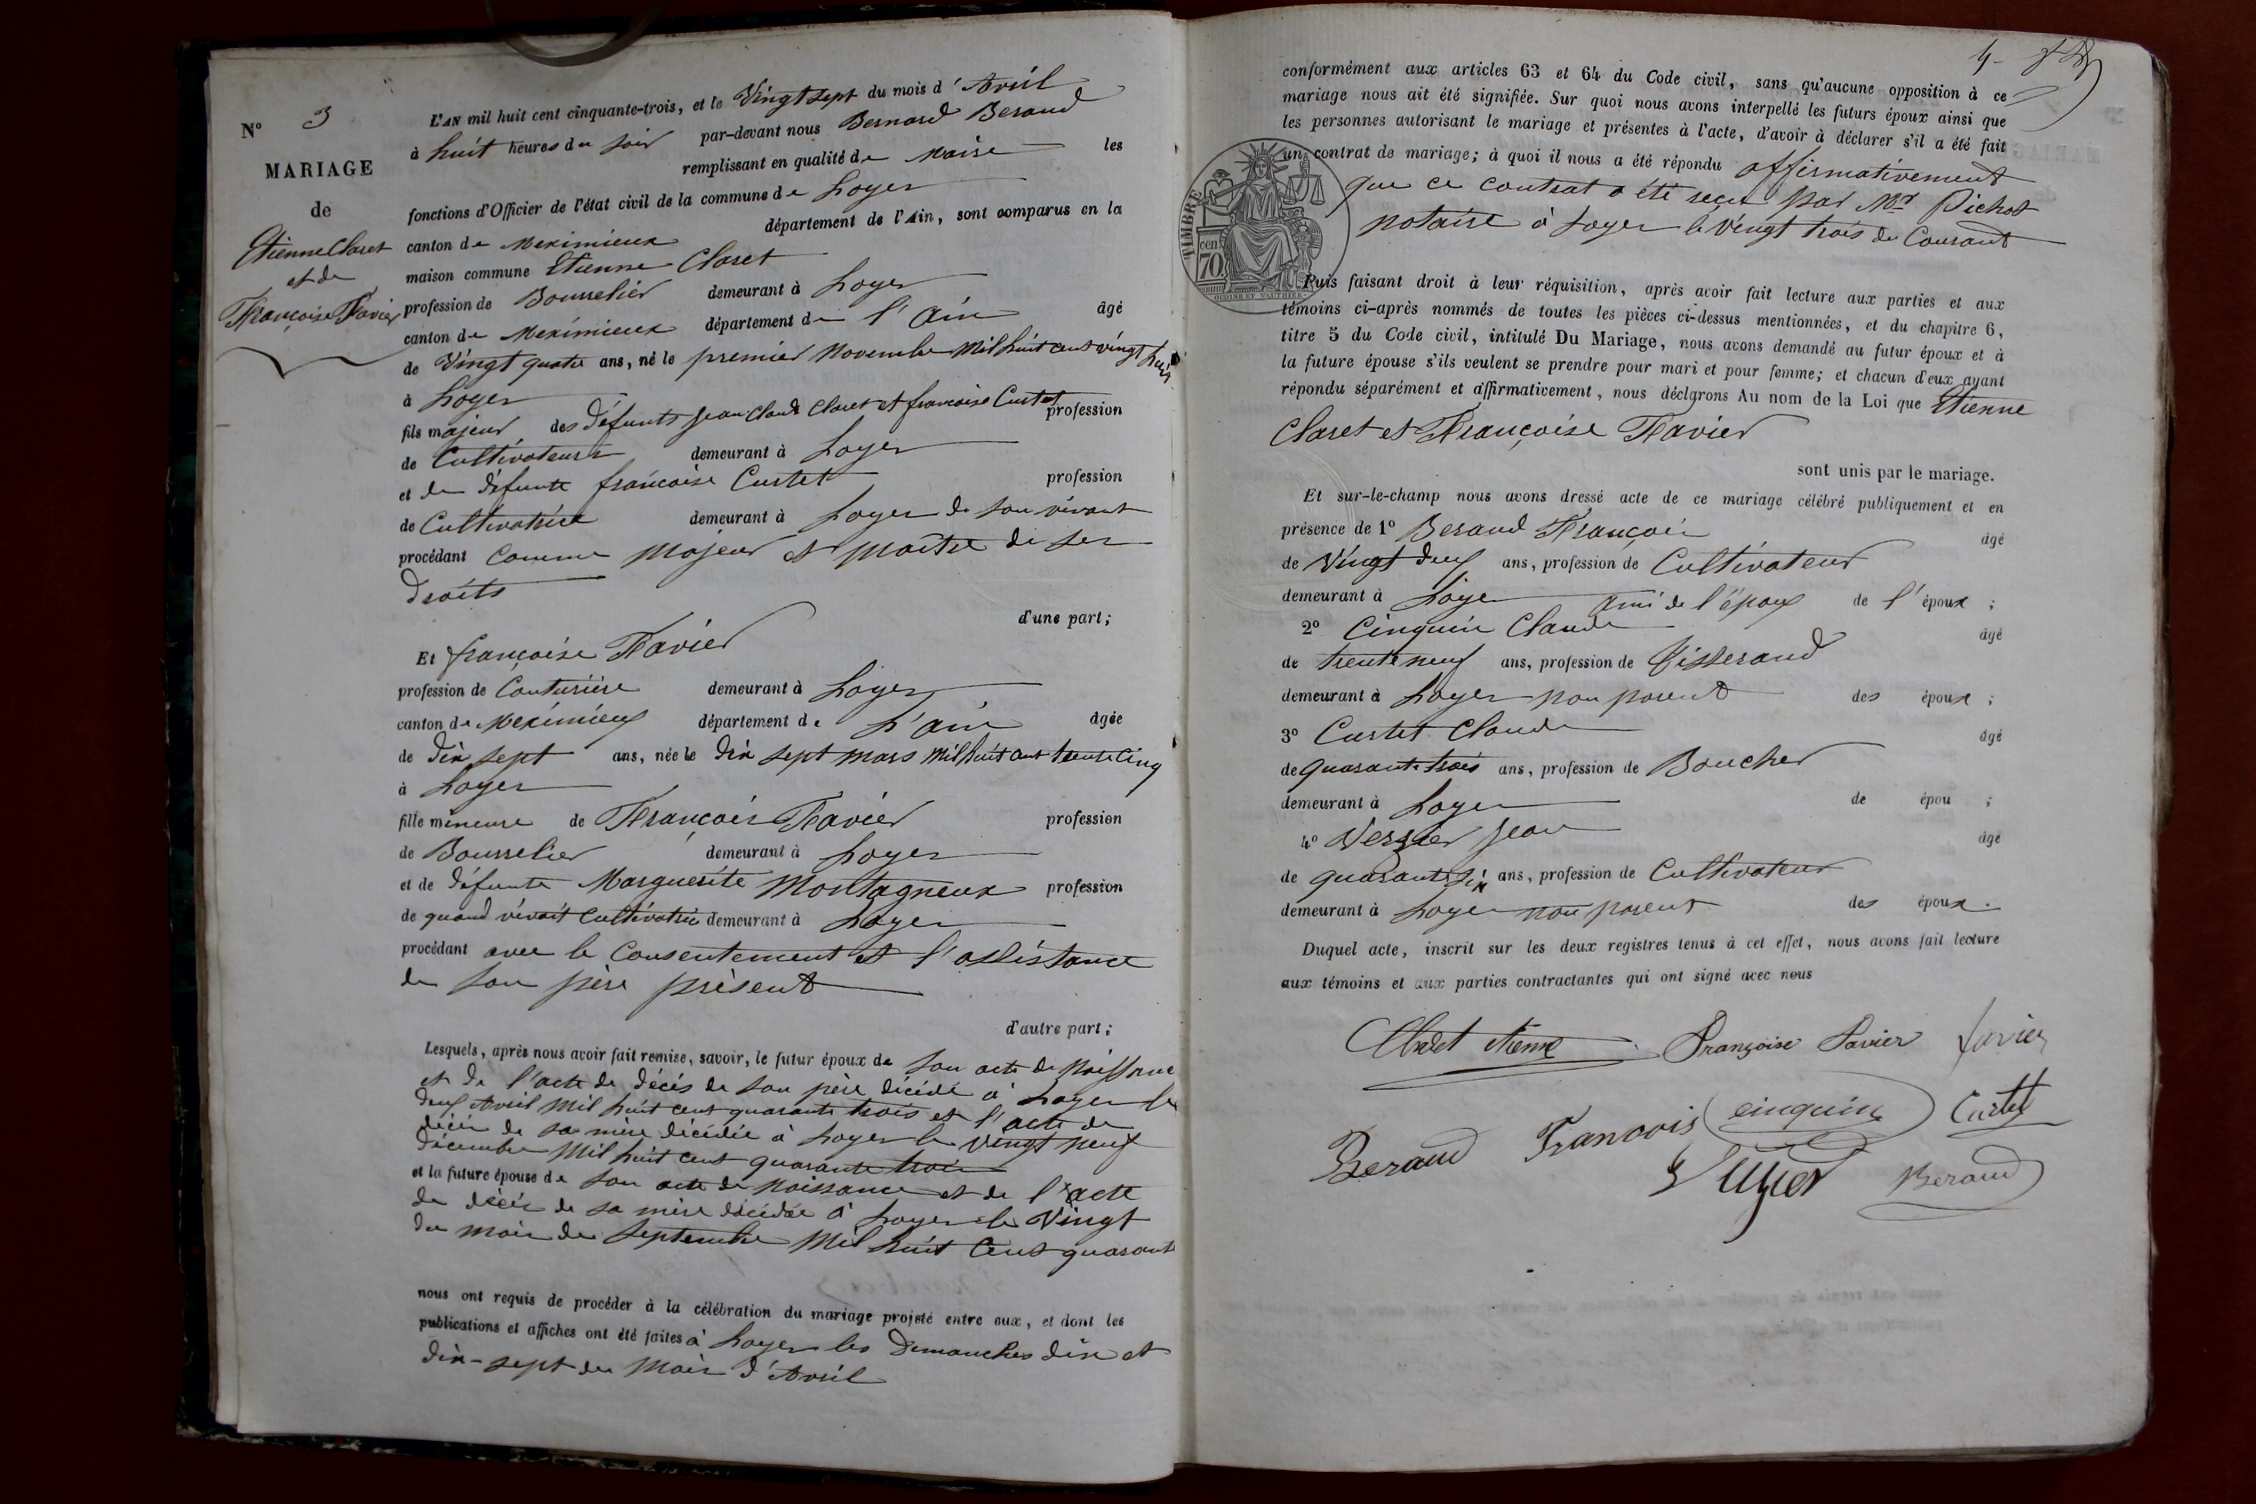 N° 3
MARIAGE
de
Etienne Claret
et de
Françoise Favier
L'AN mil huit cent cinquante-trois, et le Vingt sept du mois d'Avril
à huit heures du soir par-devant nous Bernard Beraud
remplissant en qualité de Maire les
fonctions d'Officier de l'état civil de la commune de Loyes
canton de Meximieux département de l'Ain, sont comparus en la
maison commune Etienne Claret
profession de Bourrelier demeurant à Loyes
canton de Meximieux département de l'Ain âgé
de Vingt quatre ans, né le premier Novembre Mil huit cent vingt huit
à Loyes
fils majeur des défunts Jean Claude Claret et françoise Curtet profession
de Cultivateurs demeurant à Loyes
et de défunte françoise Curtet profession
de Cultivatrice demeurant à Loyes de son vivant
procédant comme Majeur et Maitre de ses
droits
d'une part;
Et françoise Favier
profession de Couturière demeurant à Loyes
canton de Meximieux département de L'Ain âgée
de dix sept ans, née le dix sept mars Mil huit cent trente cinq
à Loyes
fille mineure de François Favier profession
de Bourrelier demeurant à Loyes
et de défunte Marguerite Montagneux profession
de quand vivait cultivatrice demeurant à Loyes
procédant avec le Consentement et l'assistance
de son père présent
d'autre part;
Lesquels, après nous avoir fait remise, savoir, le futur époux de son acte de Naissance
et de l'acte de décès de son père décédé à Loyes le
deux Avril Mil huit cent quarante trois et l'acte de
décès de sa mère décédée à Loyes le vingt neuf
décembre Mil huit cent quarante trois
et la future épouse de son acte de naissance et de l'acte
de décès de sa mère décédée à Loyes le Vingt
du mois de Septembre Mil huit Cent quarante
nous ont requis de procéder à la célébration du mariage projeté entre eux, et dont les
publications et affiches ont été faites à Loyes les Dimanches dix et
dix-sept du Mois d'Avril
4-
conformément aux articles 63 et 64 du Code civil, sans qu'aucune opposition à ce
mariage nous ait été signifiée. Sur quoi nous avons interpellé les futurs époux ainsi que
les personnes autorisant le mariage et présentes à l'acte, d'avoir à déclarer s'il a été fait
un contrat de mariage; à quoi il nous a été répondu affirmativement
que ce contrat a été reçu par Mr Pichot
notaire à Loyes le Vingt trois du Courant
TIMBRE
cen.
70
Puis faisant droit à leur réquisition, après avoir fait lecture aux parties et aux
témoins ci-après nommés de toutes les pièces ci-dessus mentionnées, et du chapitre 6,
titre 5 du Code civil, intitulé Du Mariage, nous avons demandé au futur époux et à
la future épouse s'ils veulent se prendre pour mari et pour femme; et chacun d'eux ayant
répondu séparément et affirmativement, nous déclarons Au nom de la Loi que Etienne
Claret et Françoise Favier
sont unis par le mariage.
Et sur-le-champ nous avons dressé acte de ce mariage célébré publiquement et en
présence de 1° Beraud François âgé
de Vingt deux ans, profession de Cultivateur
demeurant à Loye ami de l'époux de l'époux ;
2° Cinquin Claude âgé
de trente neuf ans, profession de Tisserand
demeurant à Loyes non parent des époux ;
3° Curtet Claude âgé
de quarante trois ans, profession de Boucher
demeurant à Loyes de épou ;
4° Verzier Jean âgé
de quarante six ans, profession de Cultivateur
demeurant à Loyes non parent des époux.
Duquel acte, inscrit sur les deux registres tenus à cet effet, nous avons fait lecture
aux témoins et aux parties contractantes qui ont signé avec nous
Claret etienne Françoise Favier favier
Beraud Francois cinquin Curtet
Verzier Beraud